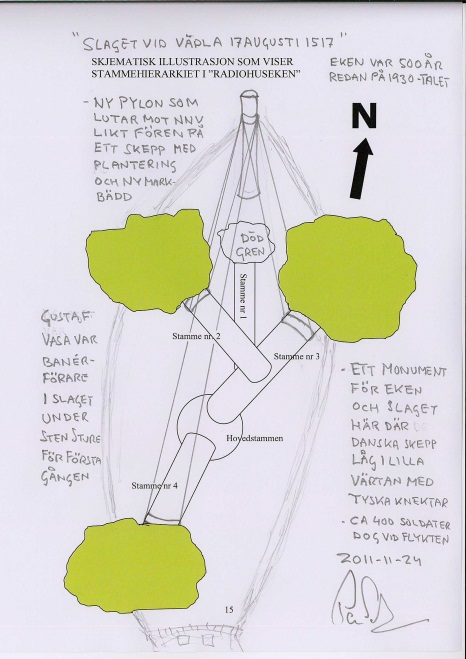 "SLAGET VID VÄDLA 17 AUGUSTI 1517"
SKJEMATISK ILLUSTRASJON SOM VISER
STAMMEHIERARKIET I "RADIOHUSEKEN"
EKEN VAR 500 ÅR
REDAN PÅ 1930-TALET
- NY PYLON SOM
LUTAR MOT NNV
LIKT FÖREN PÅ
ETT SKEPP MED
PLANTERING
OCH NY MARK-
BÄDD
N
DÖD
GREN
Stamme nr 1
Stamme nr. 2
Stamme nr 3
Hovedstammen
Stamme nr 4
GUSTAF
VASA VAR
BANÉR-
FÖRARE
I SLAGET
UNDER
STEN STURE
FÖR FÖRSTA
GÅNGEN
- ETT MONUMENT
FÖR EKEN
OCH SLAGET
HÄR DÄR
DANSKA SKEPP
LÅG I LILLA
VÄRTAN MED
TYSKA KNEKTAR
- CA 400 SOLDATER
DOG VID FLYKTEN
2011-11-24
15